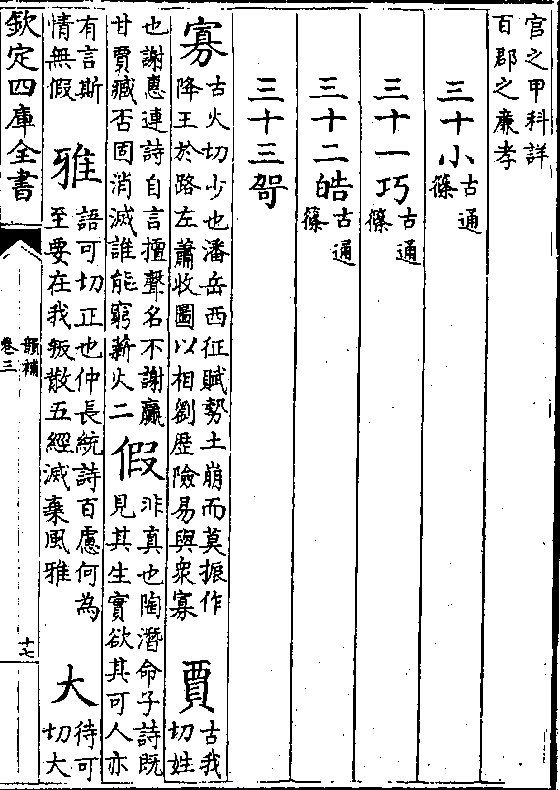 官之甲科詳
百郡之亷孝
三十小古通
篠
三十一巧古通
篠
三十二皓古通
篠
三十三哿
寡古火切少也潘岳西征賦勢土崩而莫振作
降王於路左蕭收圖以相劉歴險易與衆寡
賈古我
切姓
也謝惠連詩自言擅聲名不謝贏
甘賈臧否固消滅誰能窮薪火二
假非真也陶潛命子詩既
見其生實欲其可人亦
有言斯
情無假
雅語可切正也仲長統詩百慮何為
至要在我叛散五經滅棄風雅
大待可
切大
欽定四庫全書
韻補
卷三
十七